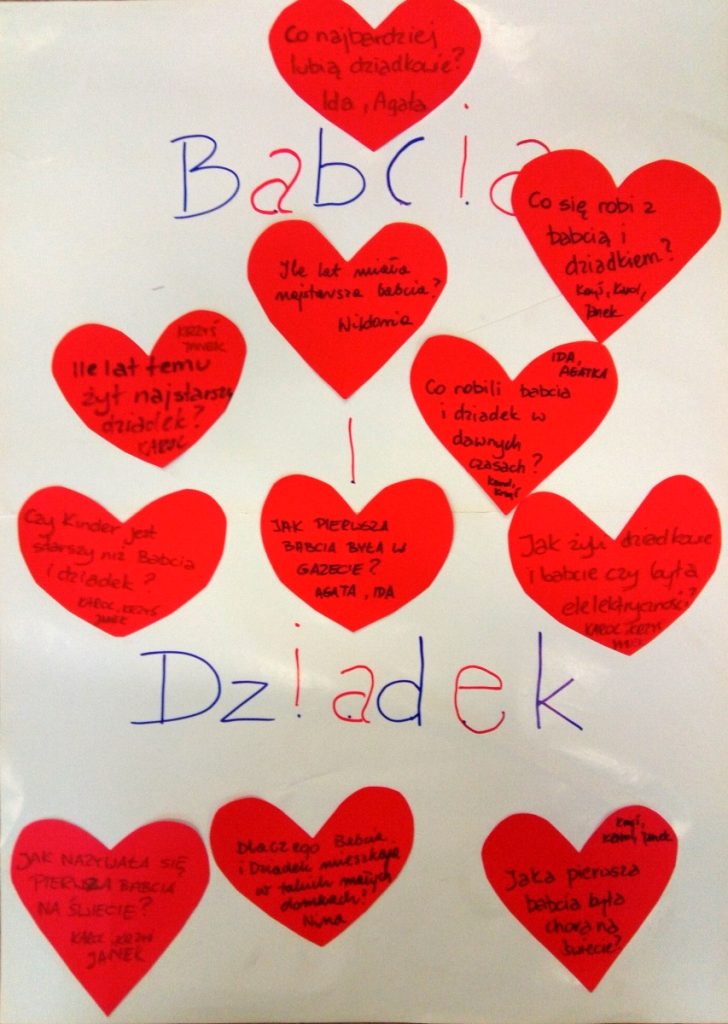 Co najbardziej
lubią dziadkowie?
Ida, Agata
Babcia
Co się robi z
babcią i
dziadkiem?
Krzyś, Karol,
Janek
Ile lat miała
najstarsza babcia?
Wiktoria
KRZYŚ
JANEK
Ile lat temu
żył najstarszy
dziadek?
KAROL
IDA,
AGATKA
Co robili babcia
i dziadek w
dawnych
czasach?
Karol,
Krzyś
i
Czy Kinder jest
starszy niż Babcia
i dziadek?
KAROL, KRZYŚ
JANEK
JAK PIERWSZA
BABCIA BYŁA W
GAZECIE?
AGATA, IDA
Jak żyli dziadkowie
i babcie czy była
elelektryczność?
KAROL KRZYŚ
Dziadek
JAK NAZYWAŁA SIĘ
PIERWSZA BABCIA
NA ŚWIECIE?
KAROL KRZYŚ
JANEK
Dlaczego Babcia
i Dziadek mieszkają
w takich małych
domkach?
Nina
Krzyś,
Karol, Janek
Jaka pierwsza
babcia była
chora na
świecie?